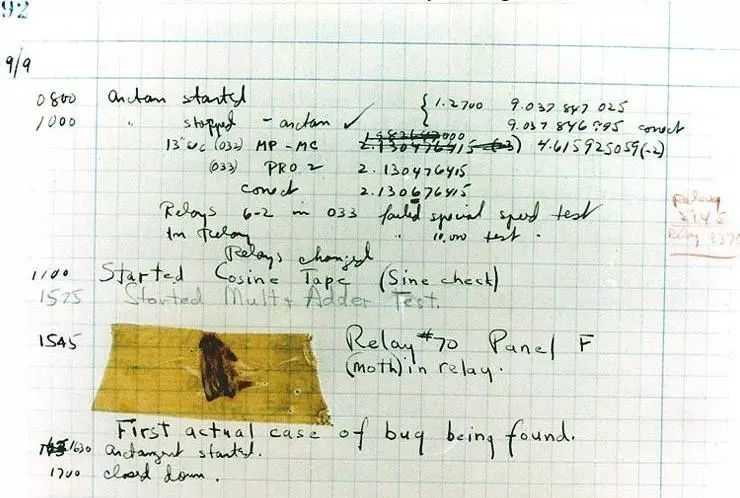 92
9/9
0800 arctan started
1000 " stopped - arctan ✓ { 1.2700 9.037 847 025
9.037 846 995 correct
13" sec (032) MP - MC 2.130476415 (-3) 4.615925059 (-2)
(033) PRO 2 2.130476415
correct 2.130676415
Relays 6-2 in 033 failed special speed test
in Relay " 10.000 test .
Relays changed
1100 Started Cosine Tape (Sine check)
1525 Started Mult + Adder Test.
1545 Relay #70 Panel F
(moth) in relay.
First actual case of bug being found.
1630 arctangent started.
1700 closed down.
Relay
Relay 3370